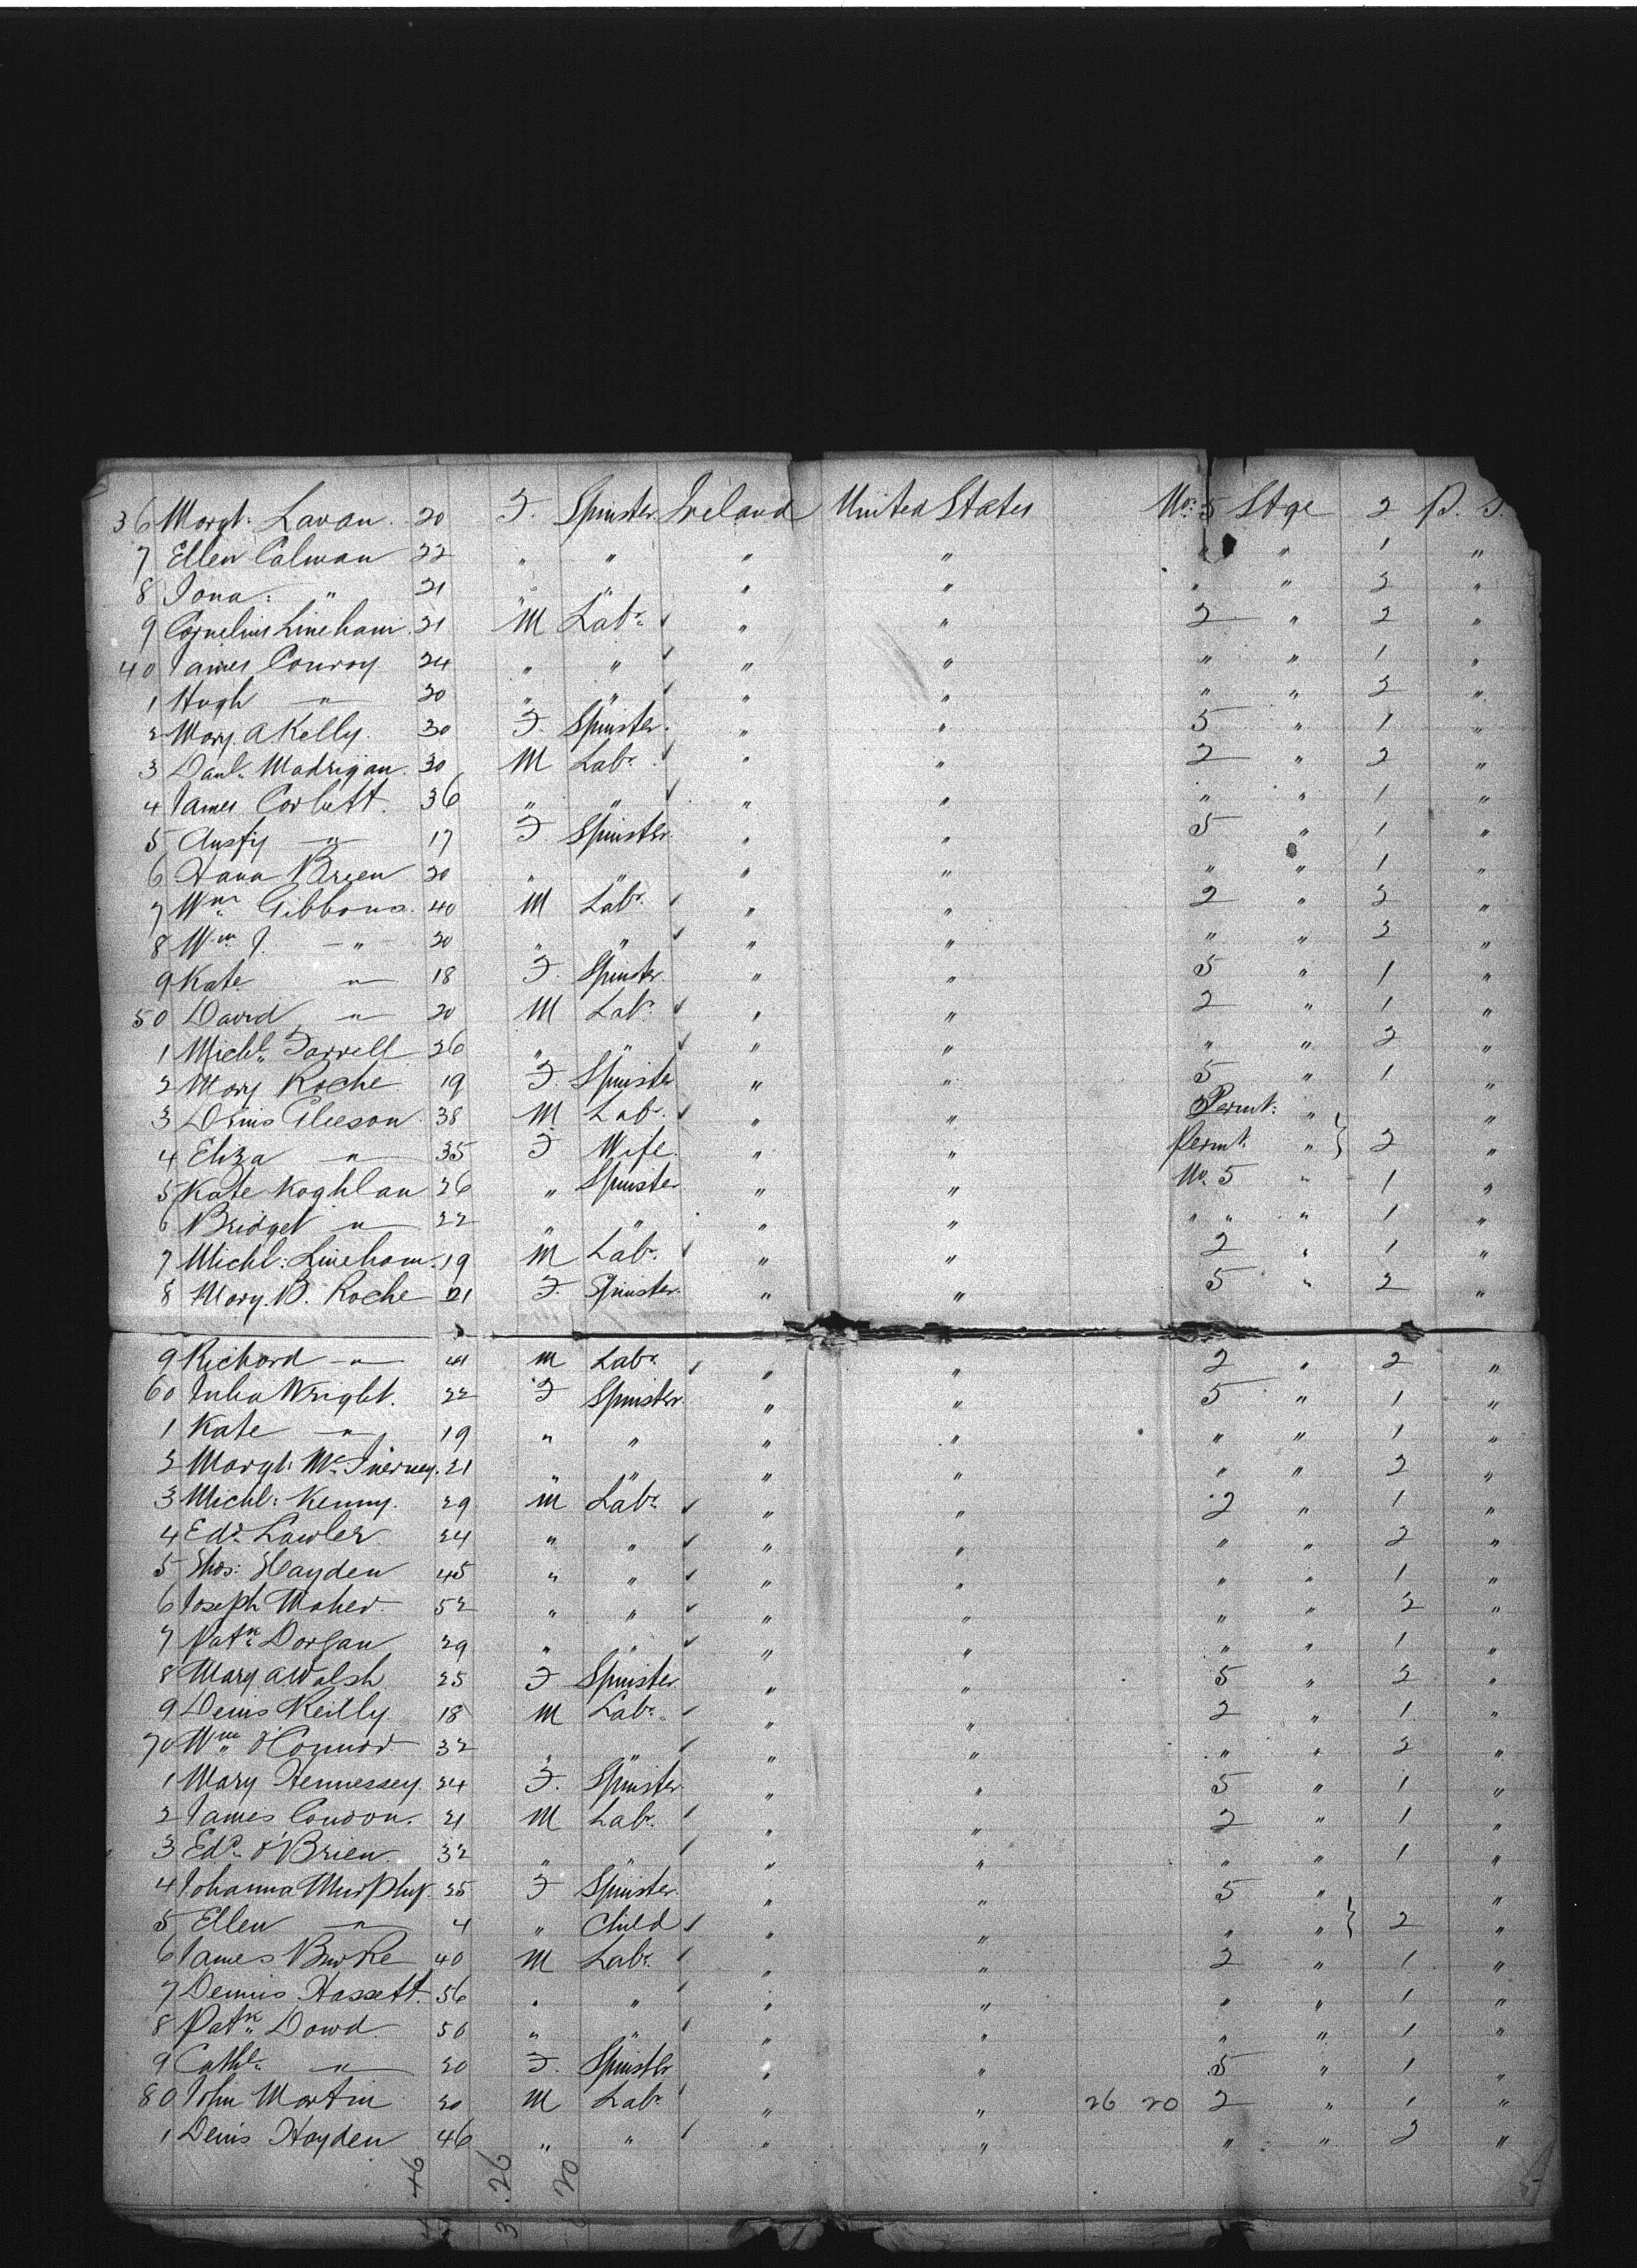 36 Margt: Lavan. 20 F. Spinster. Ireland United States No: 5 Stge 2 P. S.
7 Ellen Calman 22 " " " " " " 1 "
8 Jona: " 21 " " " " " " 2 "
9 Cornelius Lineham. 21 M Labr. ✓ " " 2 " 2 "
40 James Conroy 24 " " ✓ " " " " 1 "
1 Hugh " 20 " " ✓ " " " " 2 "
2 Mary A Kelly. 30 F. Spinster. " " 5 " 1 "
3 Danl. Madrigan. 30 M Labr. ✓ " " 2 " 2 "
4 James Corbett. 36 " " ✓ " " " " 1 "
5 Ansty " 17 F. Spinster. " " 5 " 1 "
6 Hana Breen 20 " " " " " " 1 "
7 Wm Gibbons. 40 M Labr. ✓ " " 2 " 2 "
8 Wm J. " 20 " " ✓ " " " " 2 "
9 Kate " 18 F. Spinster. " " 5 " 1 "
50 David " 20 M Labr. ✓ " " 2 " 1 "
1 Michl. Farrell 26 " " ✓ " " " " 2 "
2 Mary Roche 19 F. Spinster " " 5 " 1 "
3 Denis Gleeson. 38 M Labr. ✓ " " Permt: " "
4 Eliza " 35 F Wife. " " Permt. " } 2 "
5 Kate Koghlan 26 " Spinster. " " No. 5 " 1 "
6 Bridget " 22 " " " " " " " 1 "
7 Michl: Lineham. 19 M Labr. ✓ " " 2 " 1 "
8 Mary. B. Roche 21 F. Spinster. " " 5 " 2 "
9 Richard " M Labr. ✓ " " 2 " 2 "
60 Julia Wright. 22 F Spinster. " " 5 " 1 "
1 Kate " 19 " " " " " " 1 "
2 Margt: McInerney. 21 " " " " " " 2 "
3 Michl: Kenny. 29 M Labr. ✓ " " 2 " 1 "
4 Edd. Lawler 24 " " ✓ " " " " 2 "
5 Thos: Hayden 45 " " ✓ " " " " 1 "
6 Joseph Maher. 52 " " ✓ " " " " 2 "
7 Patk. Dorgan 29 " " ✓ " " " " 1 "
8 Mary A Walsh 25 F Spinster " " 5 " 2 "
9 Denis Reilly 18 M Labr. ✓ " " 2 " 1 "
70 Wm O'Connor. 32 " " ✓ " " " " 2 "
1 Mary Hennessey. 24 F. Spinster " " 5 " 1 "
2 James Condon. 21 M Labr. ✓ " " 2 " 1 "
3 Edd. O'Brien. 32 " " ✓ " " " " 1 "
4 Johanna Murphy. 25 F Spinster. " " 5 " "
5 Ellen " 4 " Child ✓ " " " " } 2 "
6 James Burke 40 M Labr. ✓ " " 2 " 1 "
7 Dennis Hassett. 56 " " ✓ " " " " 1 "
8 Patk. Dowd. 50 " " ✓ " " " " 1 "
9 Cathe. " 20 F. Spinster " " 5 " 1 "
80 John Martin 20 M Labr ✓ " " 26 20 2 " 1 "
1 Denis Hayden 46 " " ✓ " " " " 2 "
46 3.26 20